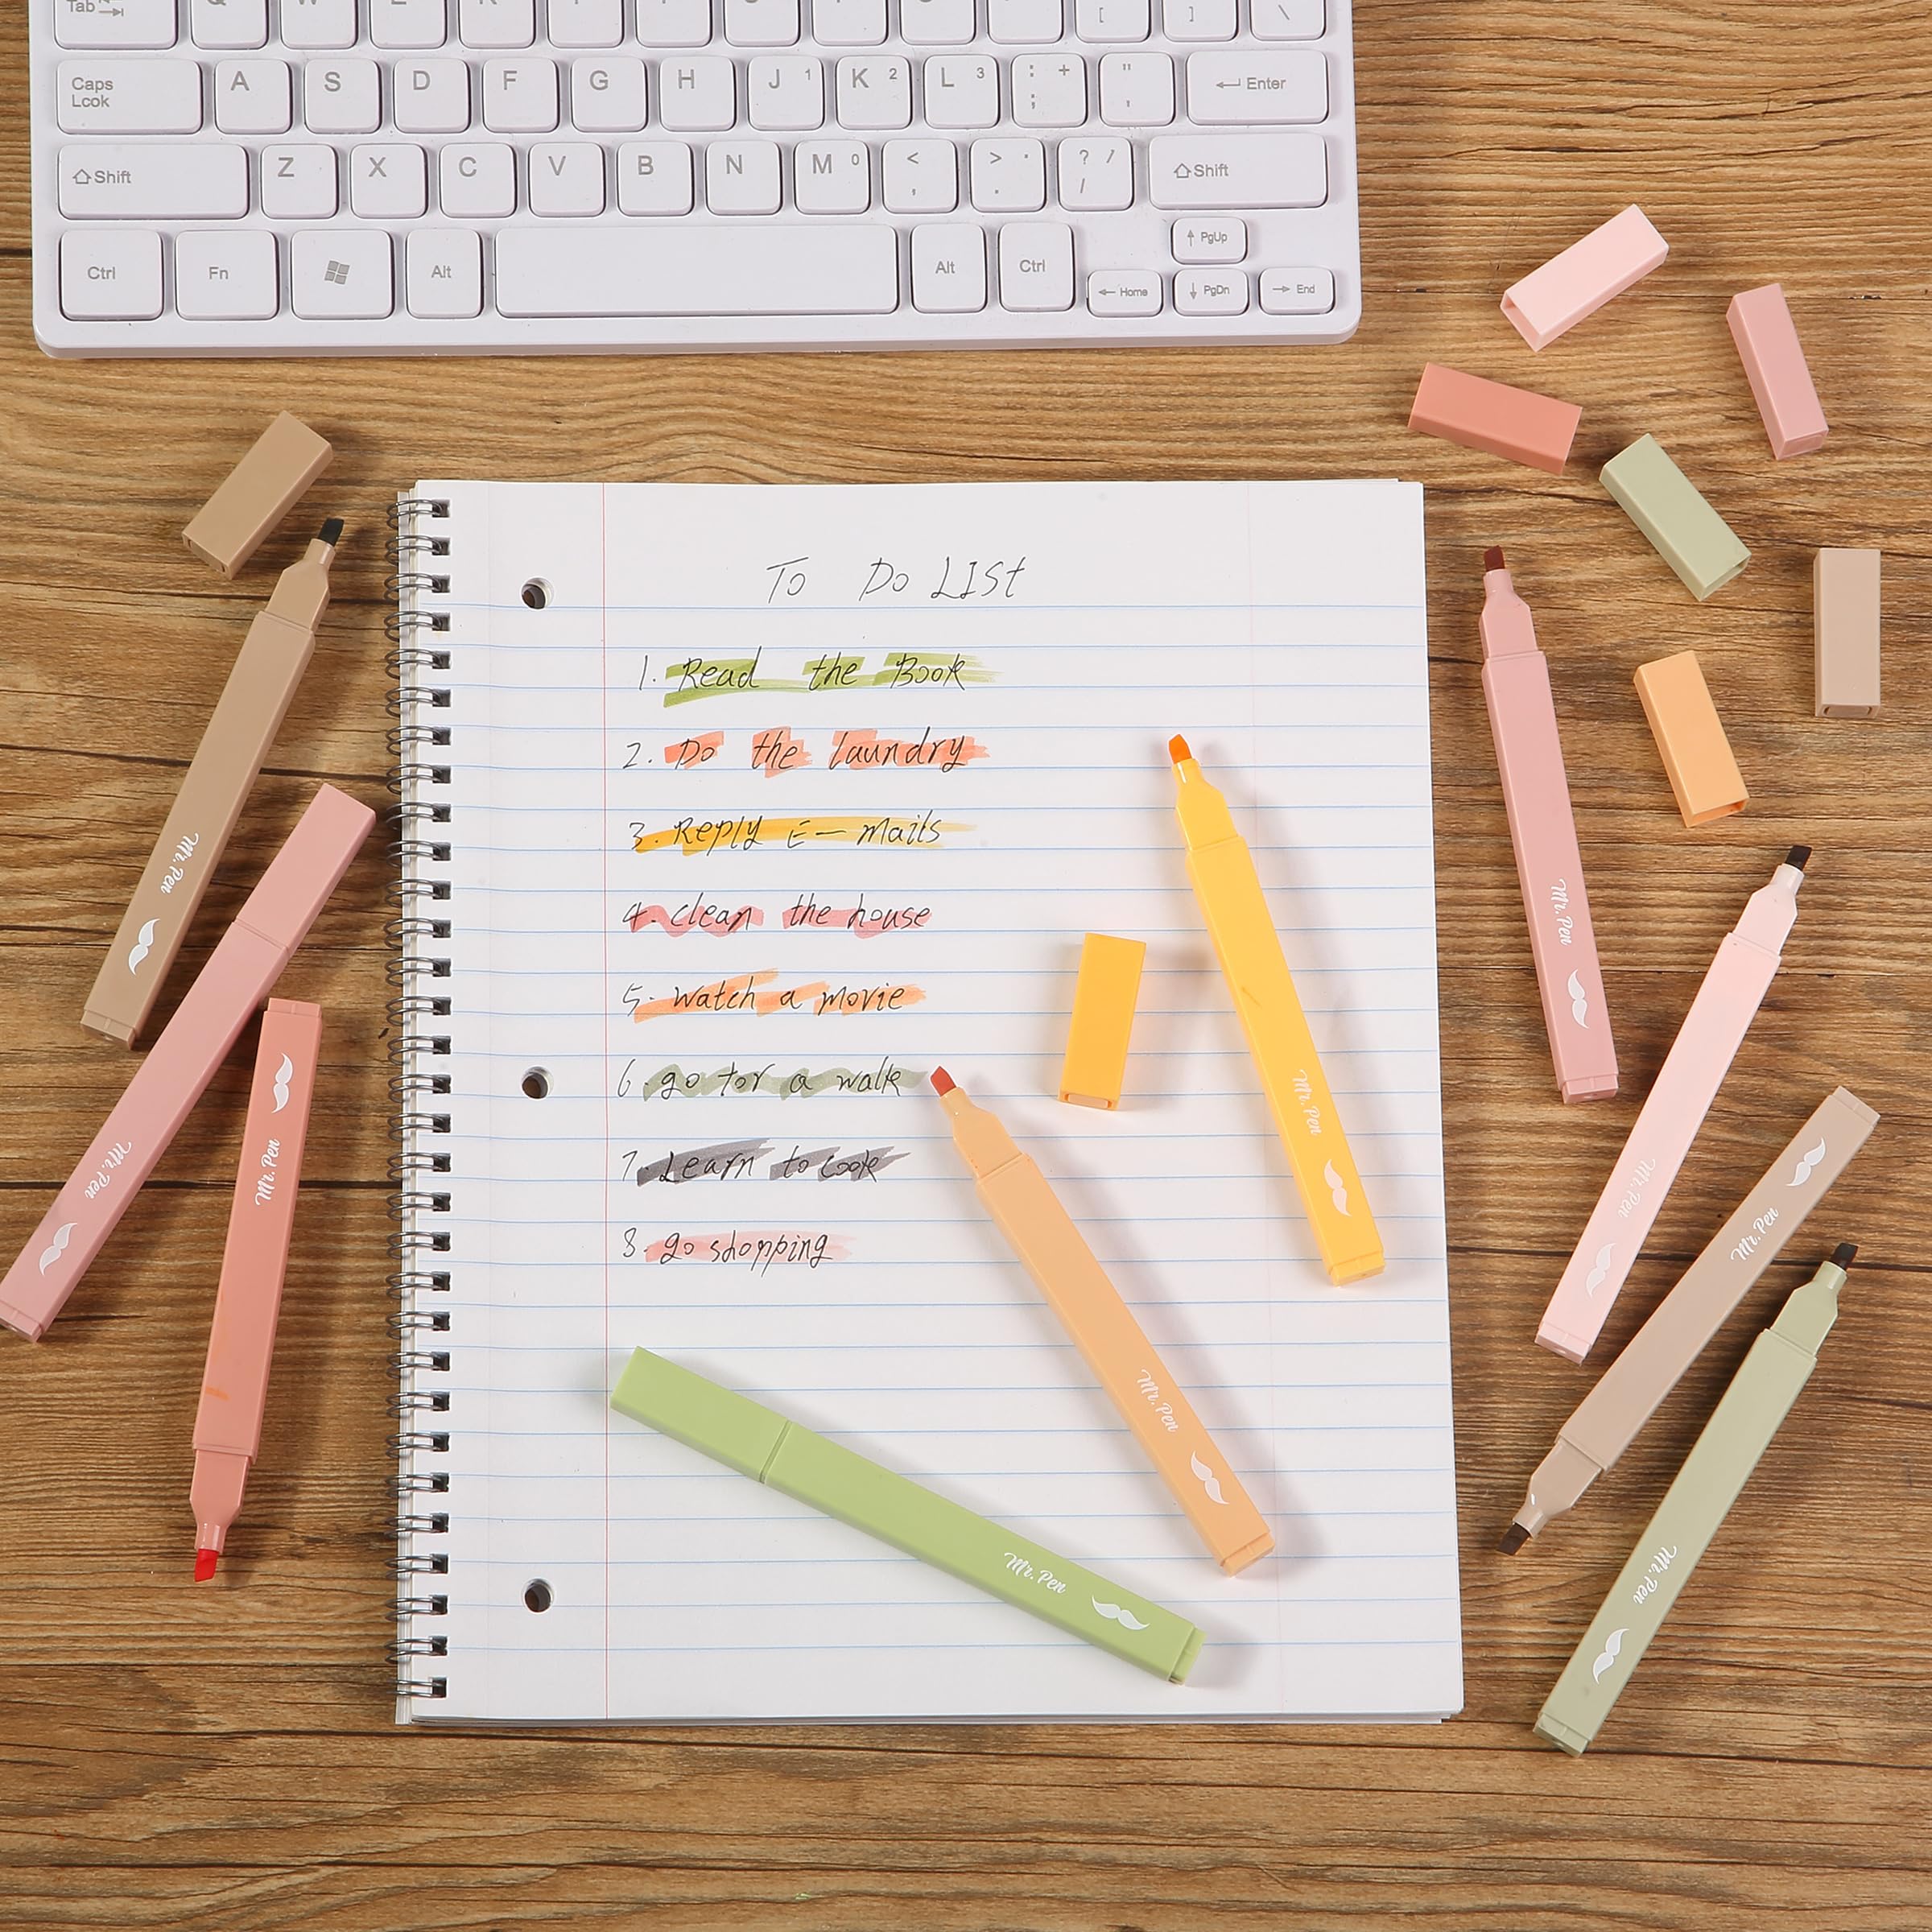 Tab
Q W E R T Y U I O P [ ] \
Caps Lcok A S D F G H J 1 K 2 L 3 : + ; " ' Enter
Shift Z X C V B N M 0 < , > . ? / / Shift
Ctrl Fn Alt Alt Ctrl Home PgUp PgDn End
TO DO LISt
1. Read the Book
2. Do the laundry
3. Reply E-mails
4. clean the house
5. watch a movie
6. go for a walk
7. Learn to cook
8. go shopping
Mr. Pen
Mr. Pen
Mr. Pen
Mr. Pen
Mr. Pen
Mr. Pen
Mr. Pen
Mr. Pen
Mr. Pen
Mr. Pen